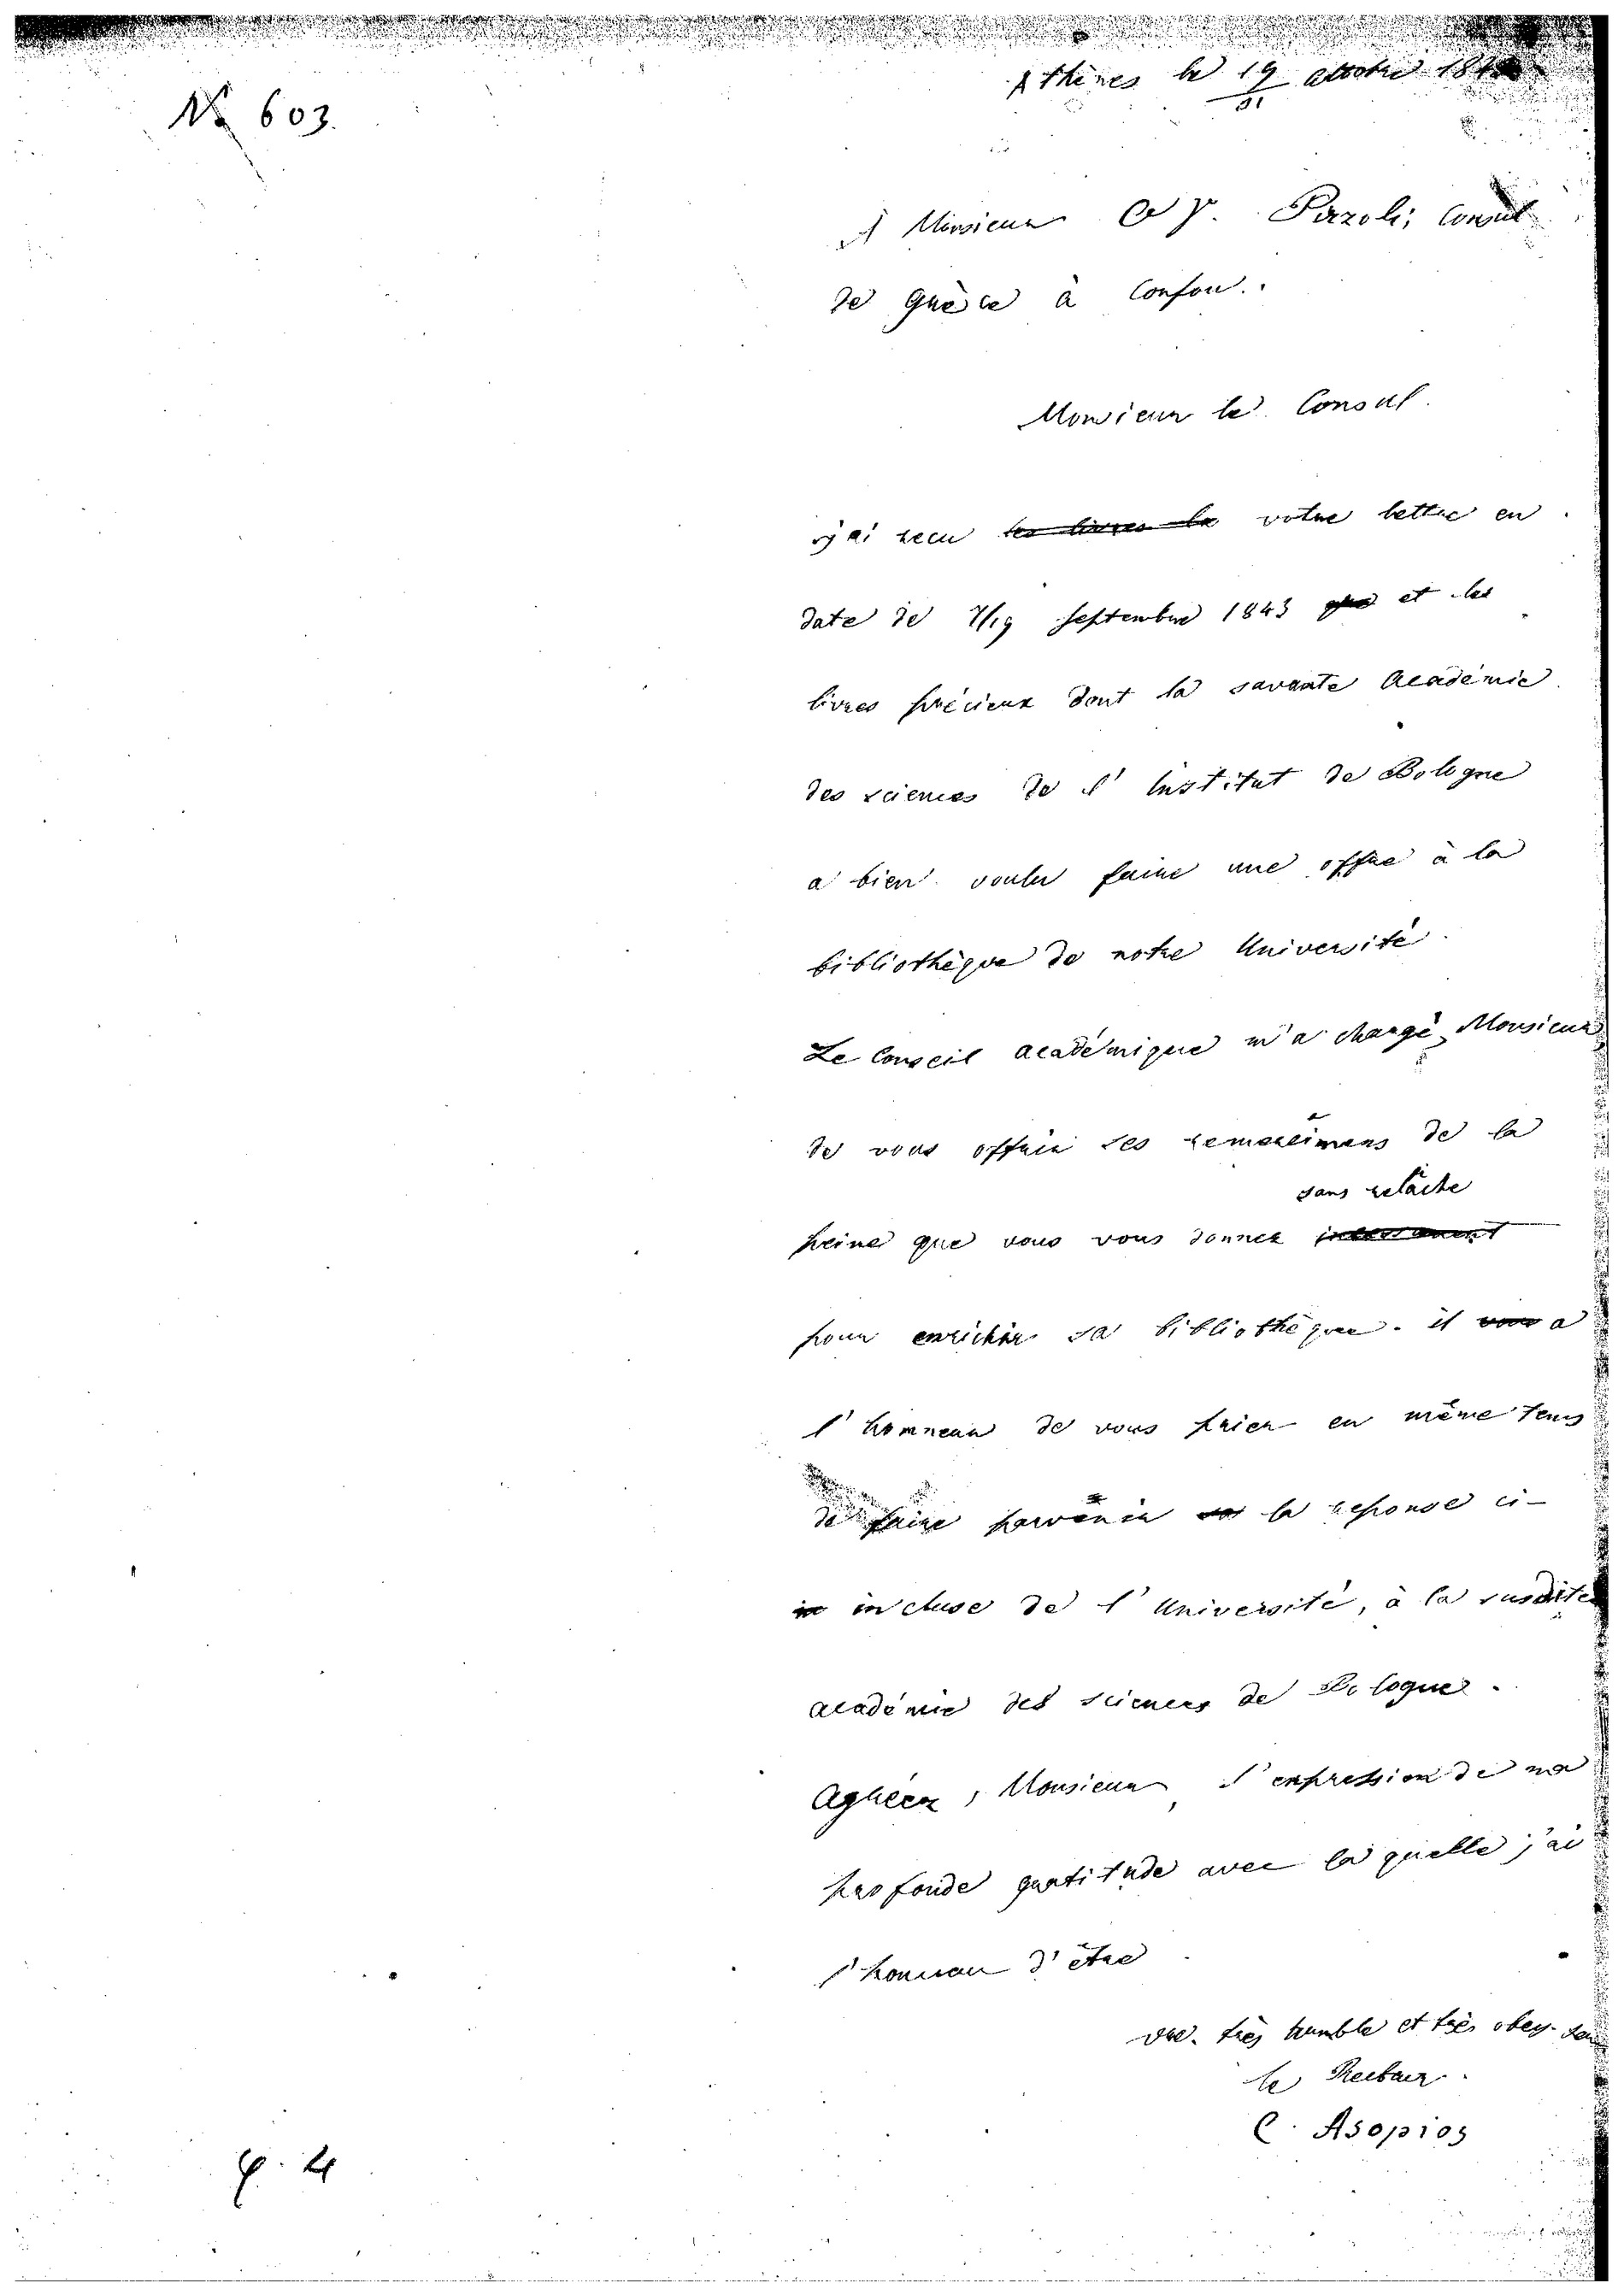 No 603.
Athènes le 19/31 octobre 184
A Monsieur Pizzoli, Consul
de Grèce à Corfou.
Monsieur le Consul.
j'ai recu les livres la votre lettre en
date de 7/19 septembre 1843 que et les
livres précieux dont la savante Académie
des sciences de l'institut de Bologne
a bien voulu faire une offre à la
bibliothèque de notre Université.
Le Conseil académique m'a chargé, Monsieur,
de vous offrir ses remercîmens de la
sans relâche
peine que vous vous donnez incessament
pour enrichir sa bibliothèque. il vous a
l'homneur de vous prier en même tems
de faire parvenir sa la reponse ci-
in incluse de l'Université, à la susdite
académie des sciences de Bologne.
Agréez, Monsieur, l'expression de ma
profonde gratitude avec la quelle j'ai
l'honneur d'être
vre. très humble et très obey. ser
le Recteur.
C. Asopios
φ. 4